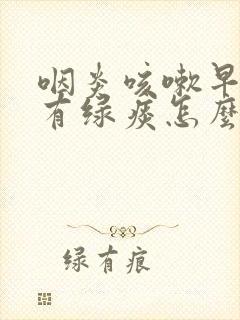 咽炎咳嗽早
有绿痰怎麽
绿有痕